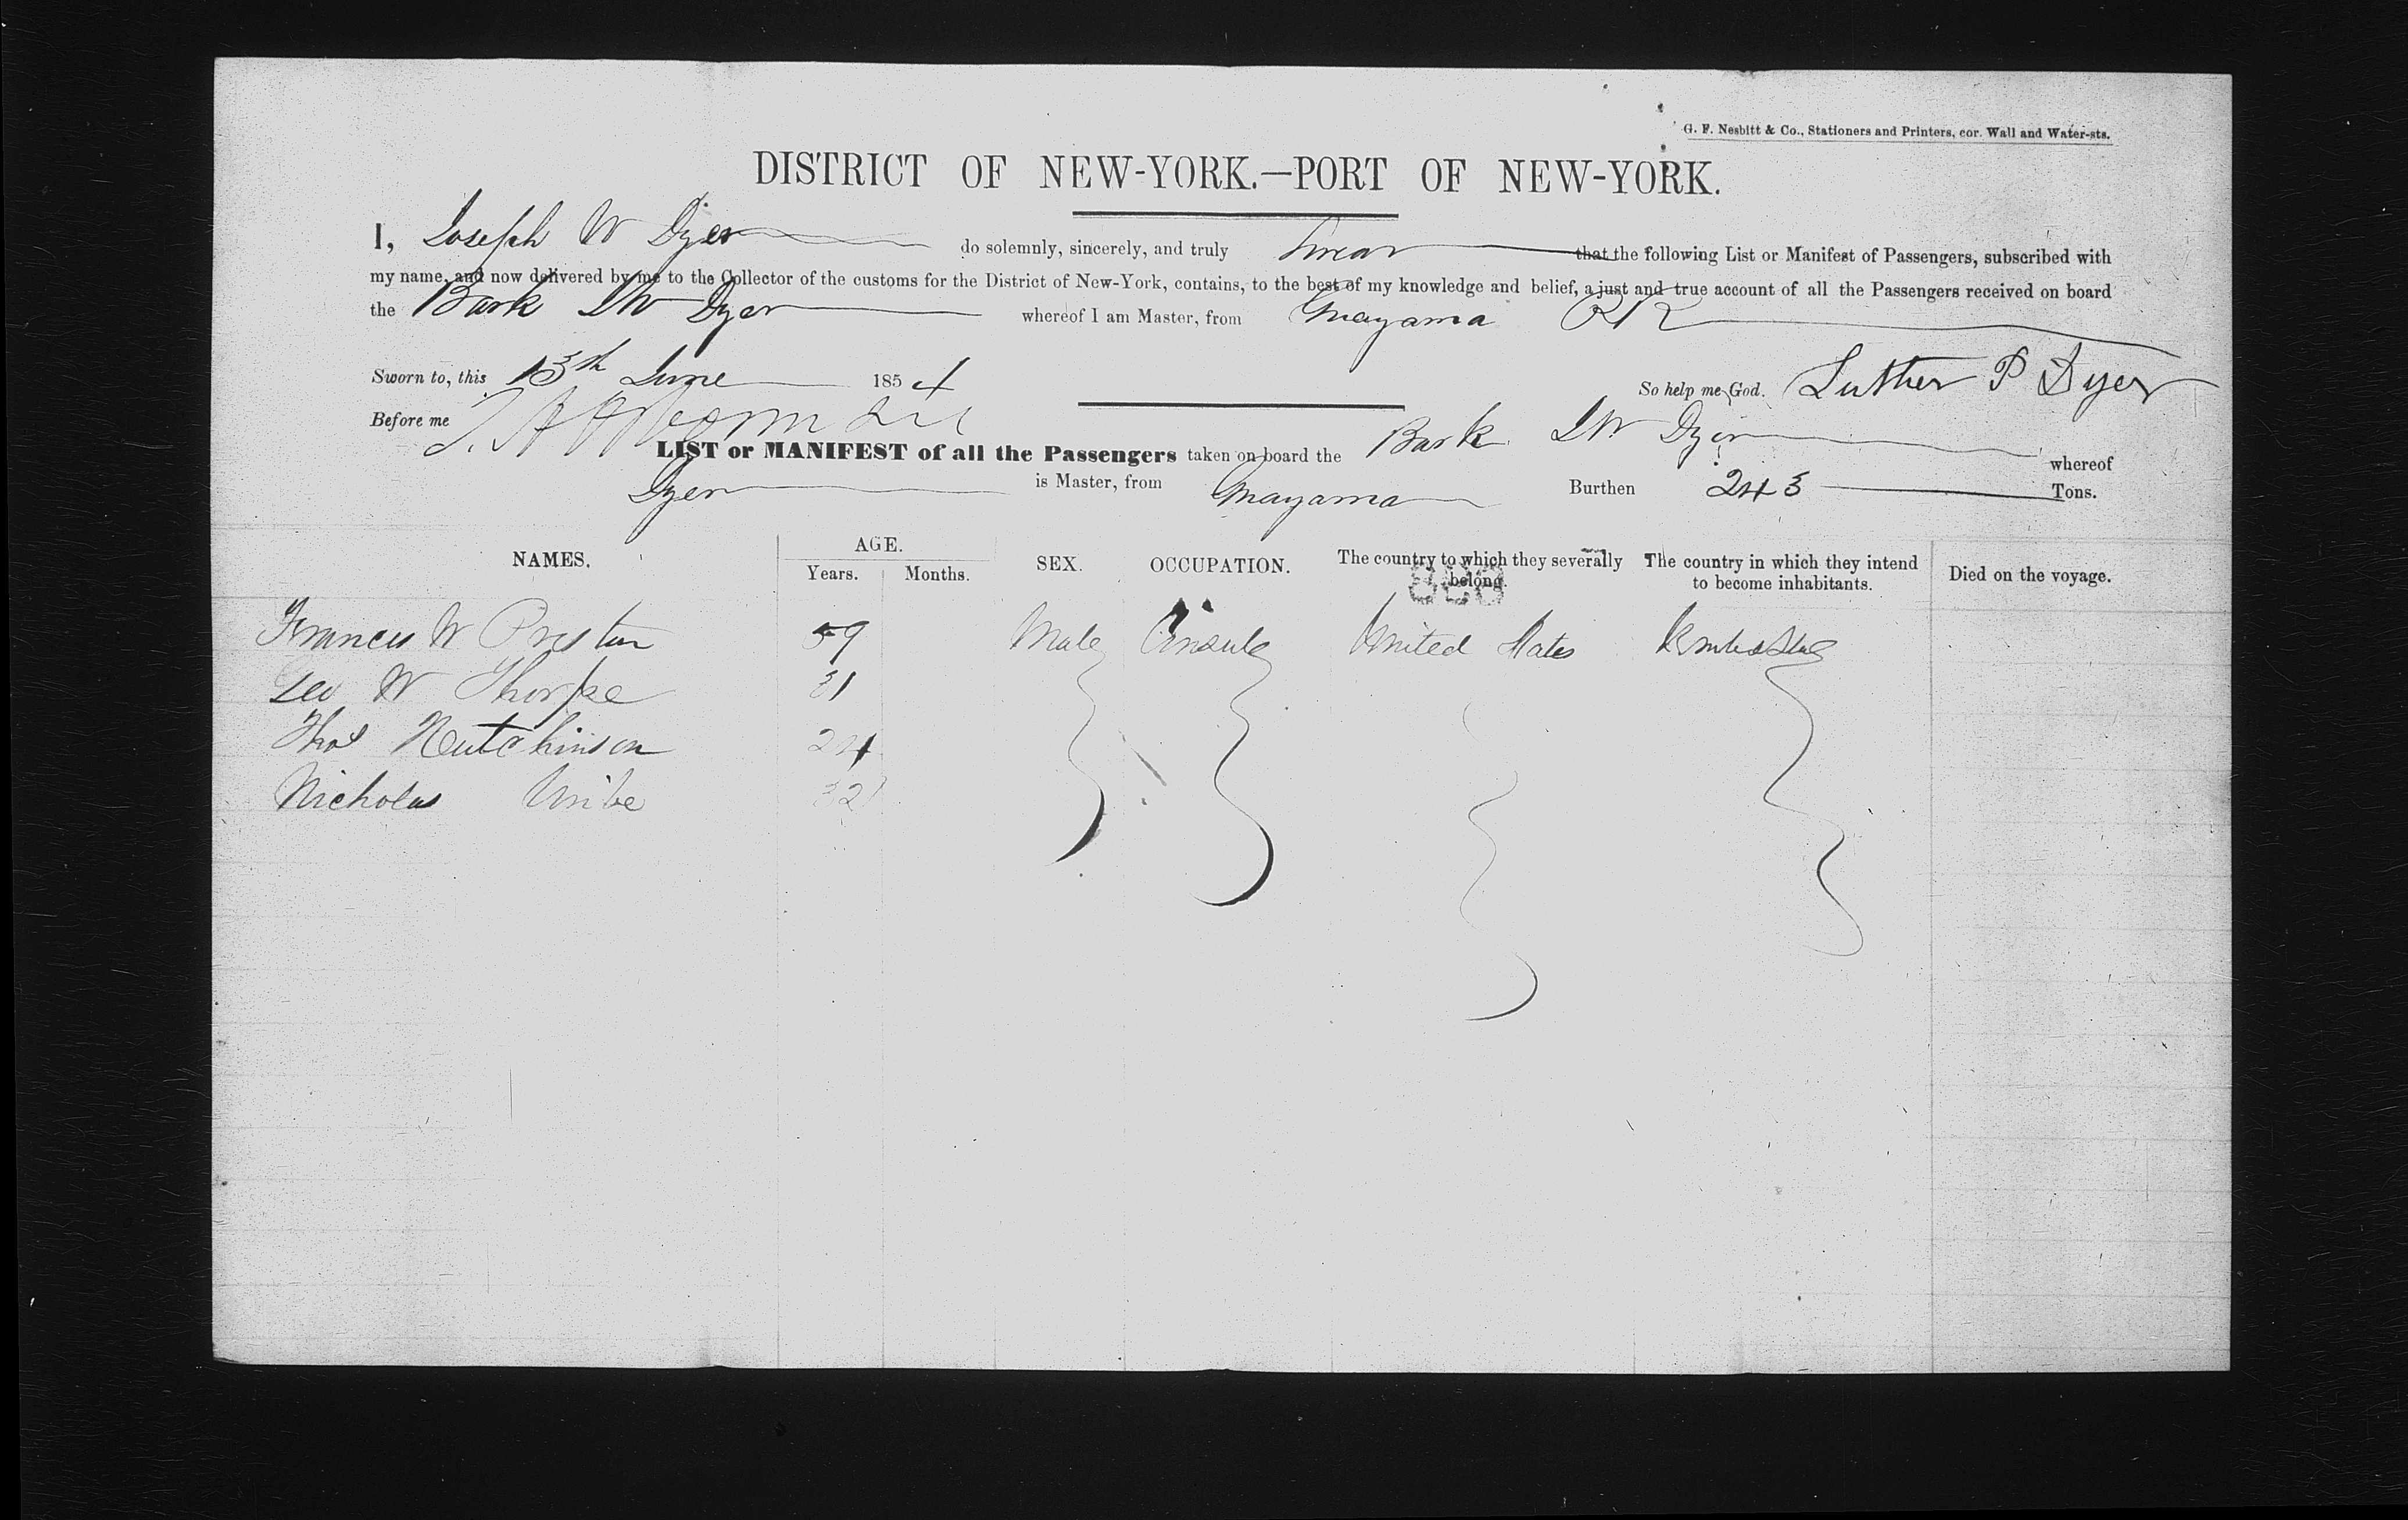 G. F. Nesbitt & Co., Stationers and Printers, cor. Wall and Water-sts.
DISTRICT OF NEW-YORK.—PORT OF NEW-YORK.
I, Joseph W Dyer do solemnly, sincerely, and truly Swear that the following List or Manifest of Passengers, subscribed with
my name, and now delivered by me to the Collector of the customs for the District of New-York, contains, to the best of my knowledge and belief, a just and true account of all the Passengers received on board
the Bark JW Dyer whereof I am Master, from
Sworn to, this 13th June 1854 So help me God. Luther P Dyer
Before me
LIST or MANIFEST of all the Passengers taken on board the Bark JW Dyer whereof
Dyer is Master, from Burthen 243 Tons.
NAMES. AGE. Years. Months. SEX. OCCUPATION. The country to which they severally belong. The country in which they intend to become inhabitants. Died on the voyage.
Francis W Preston 59 Male United States United States
Geo W Thorpe 31
Thos Hutchinson 24
Nicholas Uribe 32